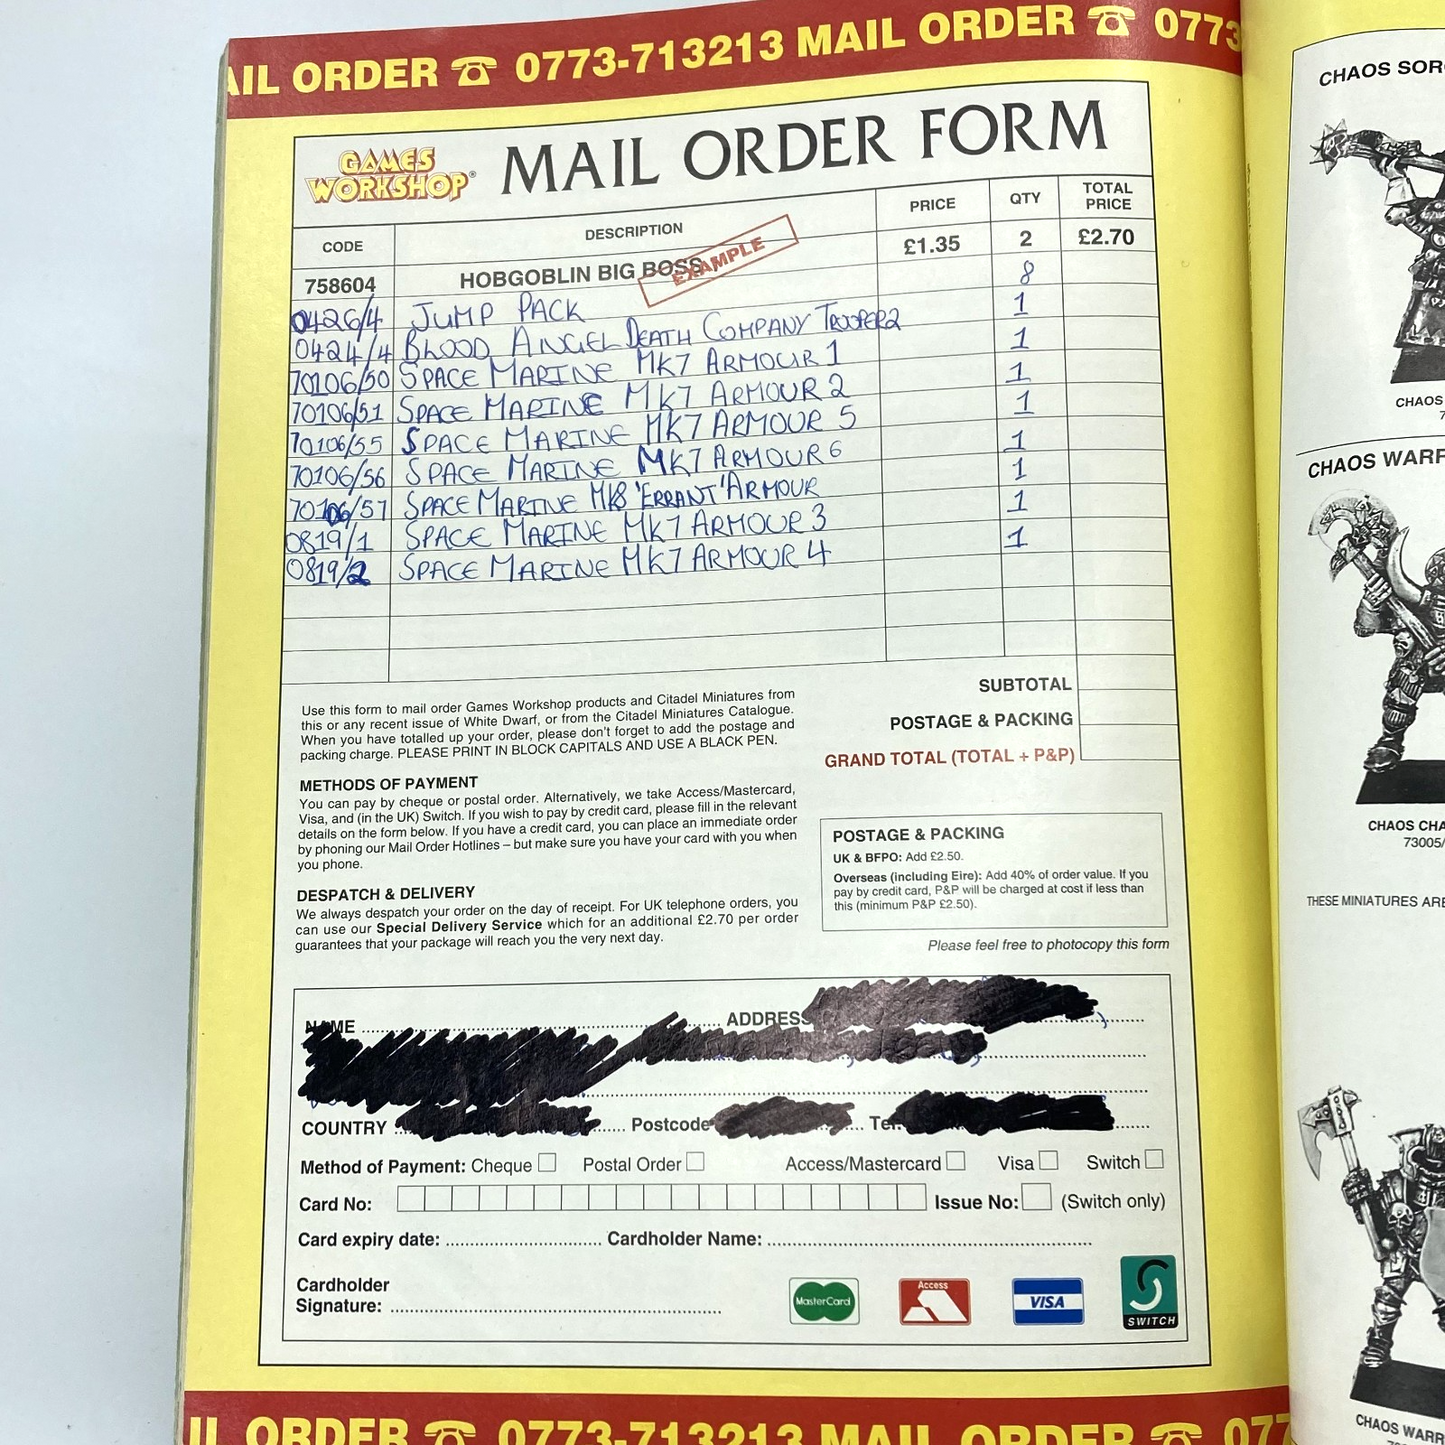 AIL ORDER ☎ 0773-713213 MAIL ORDER ☎ 0773
GAMES WORKSHOP® MAIL ORDER FORM
CODE DESCRIPTION PRICE QTY TOTAL PRICE
758604 HOBGOBLIN BIG BOSS EXAMPLE £1.35 2 £2.70
0426/4 JUMP PACK 8
0424/4 BLOOD ANGEL DEATH COMPANY TROOPER 2 1
70106/50 SPACE MARINE MK7 ARMOUR 1 1
70106/51 SPACE MARINE MK7 ARMOUR 2 1
70106/55 SPACE MARINE MK7 ARMOUR 5 1
70106/56 SPACE MARINE MK7 ARMOUR 6 1
70106/57 SPACE MARINE MK8 'ERRANT' ARMOUR 1
0819/1 SPACE MARINE MK7 ARMOUR 3 1
0819/2 SPACE MARINE MK7 ARMOUR 4 1
SUBTOTAL
POSTAGE & PACKING
GRAND TOTAL (TOTAL + P&P)
Use this form to mail order Games Workshop products and Citadel Miniatures from
this or any recent issue of White Dwarf, or from the Citadel Miniatures Catalogue.
When you have totalled up your order, please don't forget to add the postage and
packing charge. PLEASE PRINT IN BLOCK CAPITALS AND USE A BLACK PEN.
METHODS OF PAYMENT
You can pay by cheque or postal order. Alternatively, we take Access/Mastercard,
Visa, and (in the UK) Switch. If you wish to pay by credit card, please fill in the relevant
details on the form below. If you have a credit card, you can place an immediate order
by phoning our Mail Order Hotlines – but make sure you have your card with you when
you phone.
DESPATCH & DELIVERY
We always despatch your order on the day of receipt. For UK telephone orders, you
can use our Special Delivery Service which for an additional £2.70 per order
guarantees that your package will reach you the very next day.
POSTAGE & PACKING
UK & BFPO: Add £2.50.
Overseas (including Eire): Add 40% of order value. If you
pay by credit card, P&P will be charged at cost if less than
this (minimum P&P £2.50).
Please feel free to photocopy this form
NAME ADDRESS
COUNTRY Postcode Tel.
Method of Payment: Cheque Postal Order Access/Mastercard Visa Switch
Card No: Issue No: (Switch only)
Card expiry date: Cardholder Name:
Cardholder
Signature:
MasterCard Access VISA SWITCH
IL ORDER ☎ 0773-713213 MAIL ORDER ☎ 077
CHAOS SOR
CHAOS
7
CHAOS WARR
CHAOS CHA
73005/
THESE MINIATURES ARE
CHAOS WARR